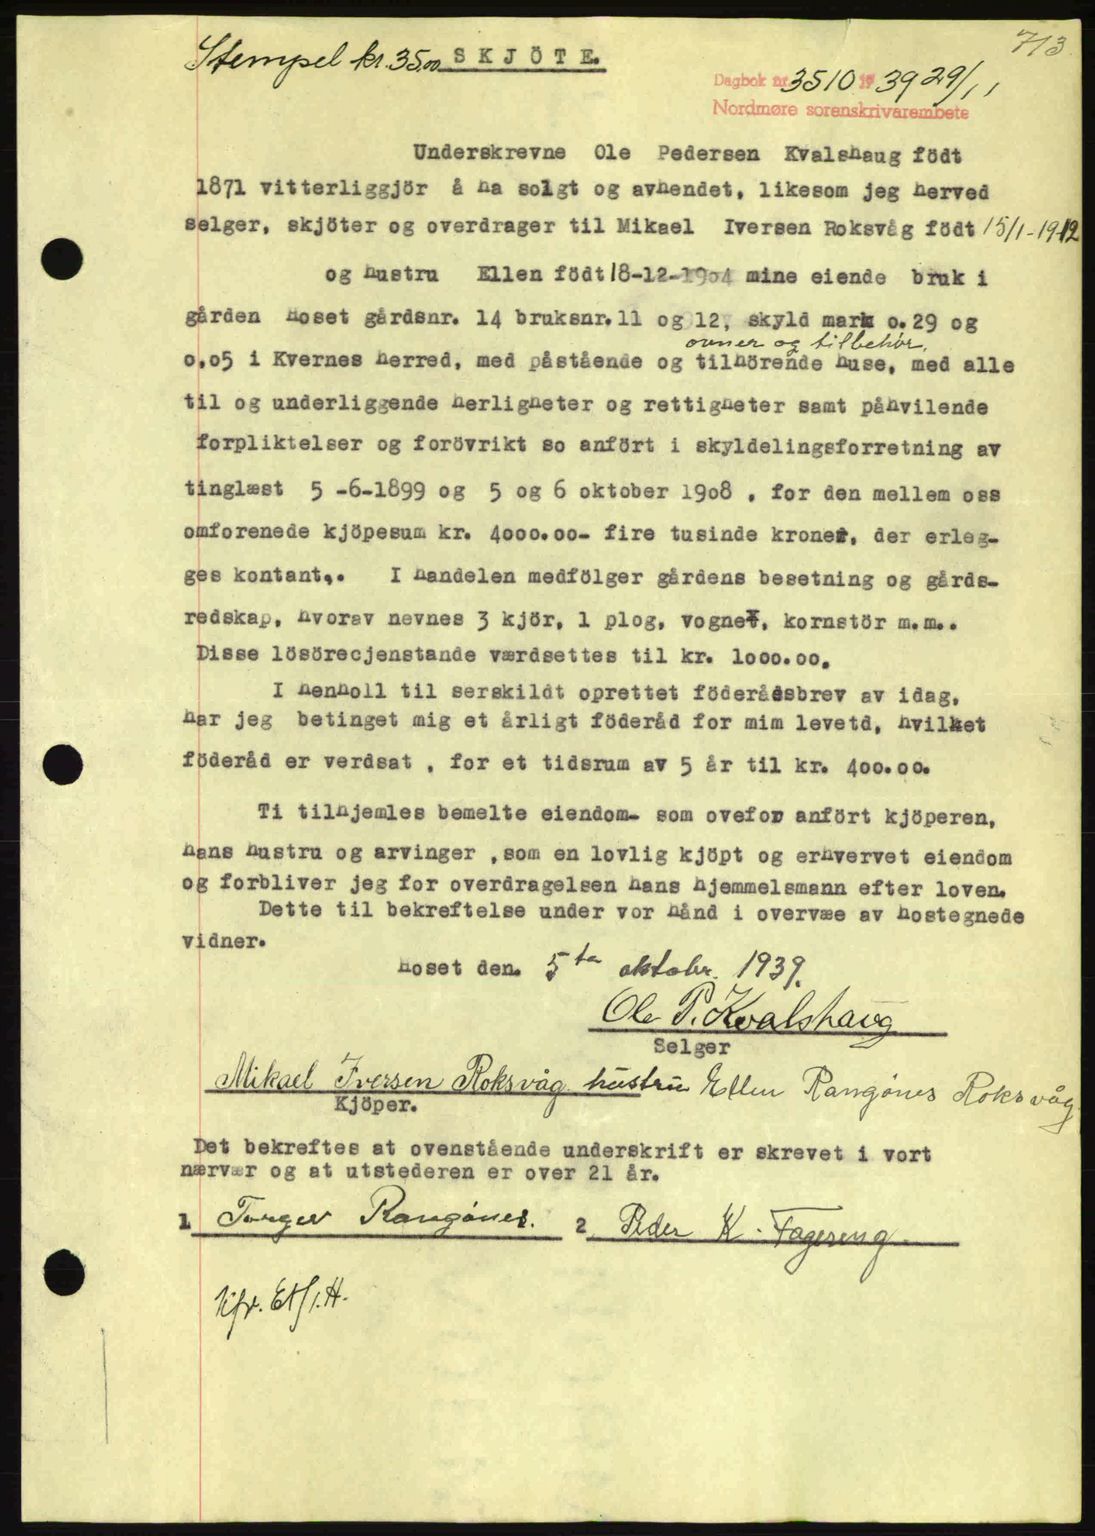 713
Stempel kr. 35.00 SKJÖTE.
Dagbok nr. 3510 19 39 29/11
Nordmøre sorenskrivarembete
Underskrevne Ole Pedersen Kvalshaug födt
1871 vitterliggjör å ha solgt og avhendet, likesom jeg herved
selger, skjöter og overdrager til Mikael Iversen Roksvåg födt 15/1-1912
og hustru Ellen födt 18-12-1904 mine eiende bruk i
gården Hoset gårdsnr. 14 bruksnr. 11 og 12, skyld mark o.29 og
ovner og tilbehör.
o,o5 i Kvernes herred, med påstående og tilhörende huse, med alle
til og underliggende herligheter og rettigheter samt påhvilende
forpliktelser og forövrikt so anfört i skyldelingsforretning av
tinglæst 5 -6-1899 og 5 og 6 oktober 19o8 , for den mellem oss
omforenede kjöpesum kr. 4ooo.oo- fire tusinde kroner, der erleg-
ges kontant,. I handelen medfölger gårdens besetning og gårds-
redskap, hvorav nevnes 3 kjör, 1 plog, vogner, kornstör m.m..
Disse lösörecjenstande værdsettes til kr. 1ooo.oo.
I henholl til serskildt oprettet föderådsbrev av idag,
har jeg betinget mig et årligt föderåd for mim levetd, hvilket
föderåd er verdsat , for et tidsrum av 5 år til kr. 4oo.oo.
Ti tilhjemles bemelte eiendom- som ovefor anfört kjöperen,
hans hustru og arvinger ,som en lovlig kjöpt og erhvervet eiendom
og forbliver jeg for overdragelsen hans hjemmelsmann efter loven.
Dette til bekreftelse under vor hånd i overvæe av hostegnede
vidner.
Hoset den. 5ta oktobr. 1939.
Ole P. Kvalshaug
Selger
Mikael Iversen Roksvåg hustru Ellen Rangönes Roksvåg
Kjöper.
Det bekreftes at ovenstående underskrift er skrevet i vort
nærvær og at utstederen er over 21 år.
1 Torger Rangönes. 2 Peder K. Fagereng.